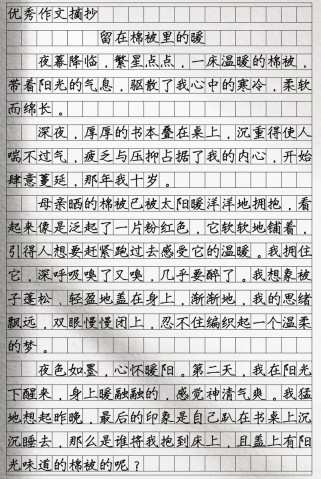 优秀作文摘抄
留在棉被里的暖
夜幕降临，繁星点点，一床温暖的棉被，
带着阳光的气息，驱散了我心中的寒冷，柔软
而绵长。
深夜，厚厚的书本叠在桌上，沉重得使人
喘不过气，疲乏与压抑占据了我的内心，开始
肆意蔓延，那年我十岁。
母亲晒的棉被已被太阳暖洋洋地拥抱，看
起来像是泛起了一片粉红色，它软软地铺着，
引得人想要赶紧跑过去感受它的温暖。我拥住
它，深呼吸嗅了又嗅，几乎要醉了。我想象被
子蓬松、轻盈地盖在身上，渐渐地，我的思绪
飘远，双眼慢慢闭上，忍不住编织起一个温柔
的梦。
夜色如墨，心怀暖阳。第二天，我在阳光
下醒来，身上暖融融的，感觉神清气爽。我猛
地想起昨晚，最后的印象是自己趴在书桌上沉
沉睡去，那么是谁将我抱到床上，且盖上有阳
光味道的棉被的呢？